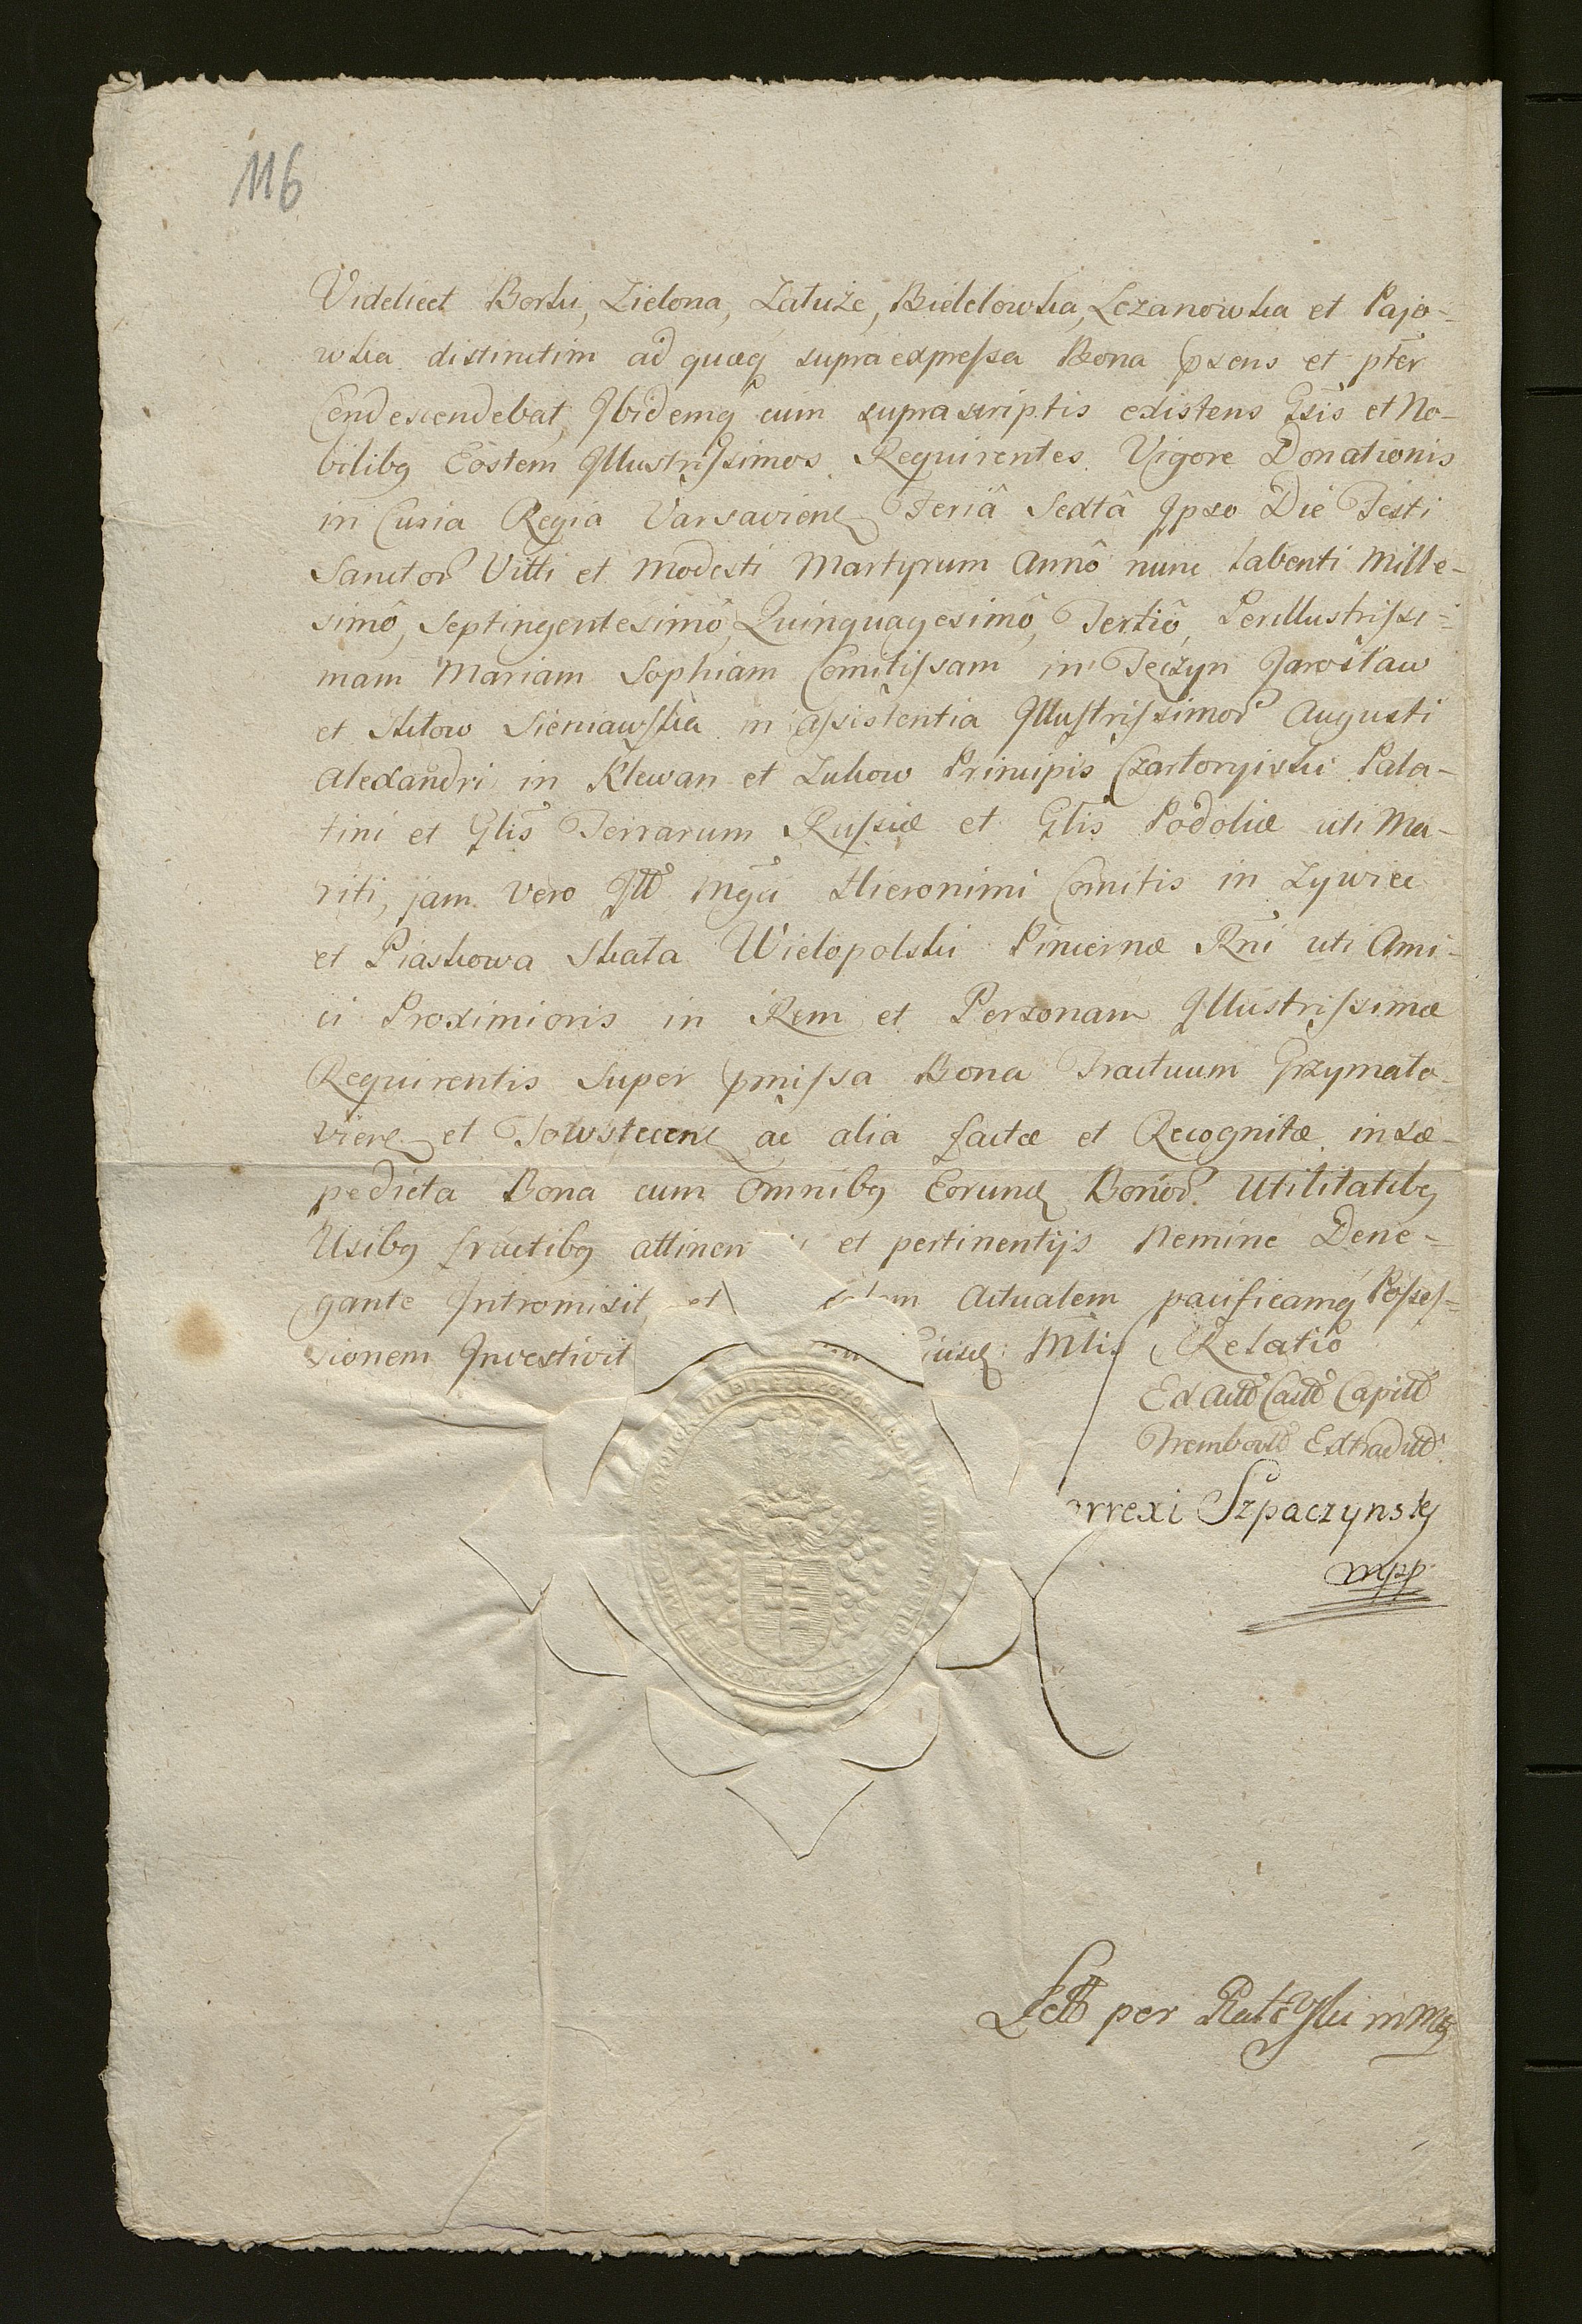 116
Videlicet Borki, Zielona, Zatuże, Bielelowka, Lezanowka et Pajo-
wka distinctim ad quæq supra expressa Bona psens et pter
Condescendebat, Ibidemq cum suprascriptis existens Gsis et No-
bilibq Eostem Illustrissimos Requirentes Vigore Donationis
in Curia Regia Varsaviens Feriâ Sextâ Ipso Die Festi
Sanctor Vitti et Modesti Martyrum Annô nunc labenti Mille-
simô, Septingentesimô, Quinquagesimô, Tertiô, Perillustrissi-
mam Mariam Sophiam Comitissam in Teczyn Jarosław
et Szkłow Sieniawska in assistentia Illustrissimor Augusti
Alexandri in Klewan et Zukow Principis Czartoryiski Pala-
tini et Glis Terrarum Russiæ et Glis Podoliæ uti Ma-
riti, jam vero Ill Mgci Hieronimi Comitis in Zywiec
et Piaskowa Skała Wielopolski Pincernæ Rni uti Ami-
ci Proximioris in Rem et Personam Illustrissimæ
Requirentis Super pmissa Bona Tractuum Grzymało-
viens et Towstecens ac alia factæ et Recognitæ in sæ-
pedicta Bona cum Omnibq Eorund Bonor Utilitatibq
Usibq fructibq attinen et pertinentijs Nemine Dene-
gante Intromisit et Actualem pacificamq Posses-
sionem Investivit Eiusd Mlis Relatio
Ex Actis Castr Capitl
Trembovl Extradit
orrexi Szpaczynsky
mpp
Lect per mmq